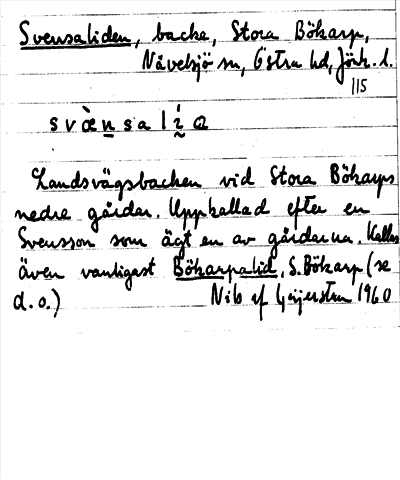 Svensaliden, backe, Stora Bökarp,
Nävelsjö sn, Östra hd, Jönk. l.
115
s v æ̀ n s a l í a
Landsvägsbacken vid Stora Bökarps
nedre gårdar. Uppkallad efter en
Svensson som ägt en av gårdarna. Kallas
även vanligast Bökarpalid, S. Bökarp (se
d.o.) Nils af Geijerstam 1960